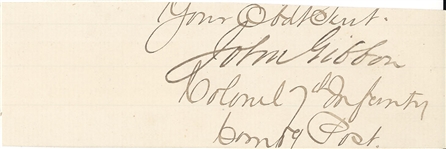 Your Obdt Svt.
John Gibbon
Colonel 7th Infantry
Comdg Post.